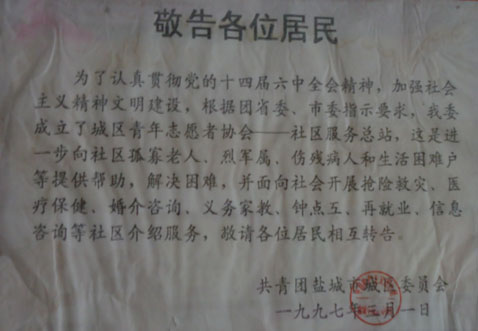 敬告各位居民
为了认真贯彻党的十四届六中全会精神，加强社会
主义精神文明建设，根据团省委、市委指示要求，我委
成立了城区青年志愿者协会——社区服务总站，这是进
一步向社区孤寡老人、烈军属、伤残病人和生活困难户
等提供帮助，解决困难，并面向社会开展抢险救灾、医
疗保健、婚介咨询、义务家教、钟点工、再就业、信息
咨询等社区介绍服务，敬请各位居民相互转告。
共青团盐城市城区委员会
一九九七年三月一日